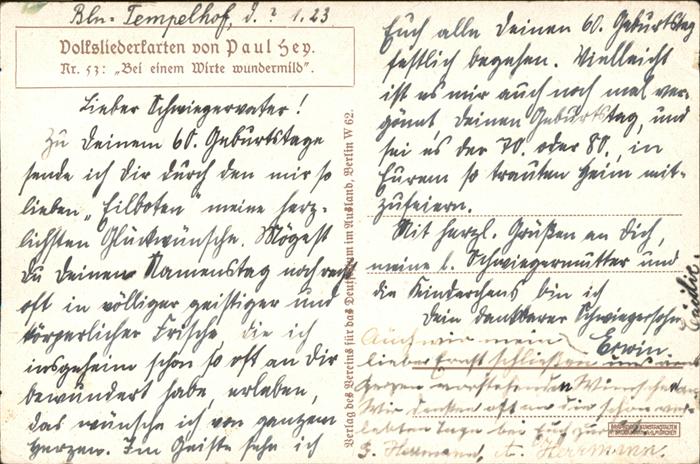 Bln-Tempelhof, d. ? 1.23
Volksliederkarten von Paul Hey.
Nr. 53: „Bei einem Wirte wundermild".
Lieber Schwiegervater!
Zu Deinem 60. Geburtstage
sende ich Dir durch den mir so
lieben „Eilboten" meine herz-
lichsten Glückwünsche. Mögest
Du Deinen Namenstag noch recht
oft in völliger geistiger und
körperlicher Frische, die ich
insgeheim schon so oft an Dir
bewundert habe, erleben,
das wünsche ich von ganzem
Herzen. Im Geiste sehe ich
Verlag des Vereins für das Deutschtum im Ausland, Berlin W 62.
Euch alle Deinen 60. Geburtstag
festlich begehen. Vielleicht
ist es mir auch noch mal ver-
gönnt Deinen Geburtstag, und
sei es der 70. oder 80., in
Eurem so trauten Heim mit-
zufeiern.
Mit herzl. Grüßen an Dich,
meine l. Schwiegermutter und
die Kinderchens bin ich
Dein dankbarer Schwiegersohn
Erwin.
Auch wir mein
lieber Ernst schließen uns von
Herzen vorstehenden Wünschen an
Wir denken oft an die schon ver-
lebten Tage bei Euch zurück
Herrmann, A. Herrmann.